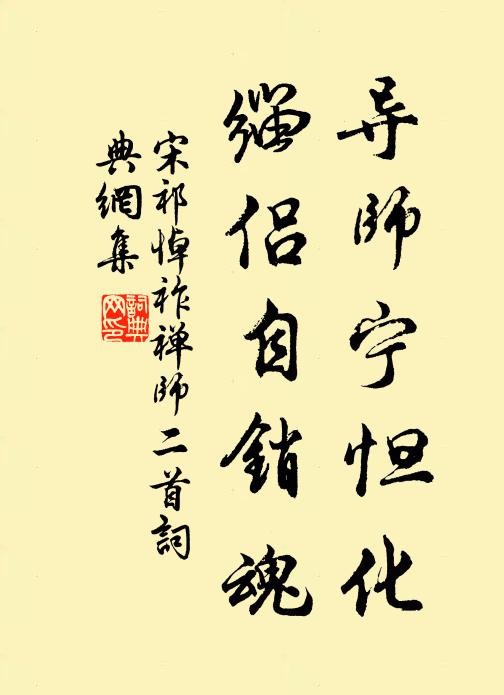 导师宁怛化
缁侣自销魂
宋祁悼祚禅师二首词
典網集
詞典網印